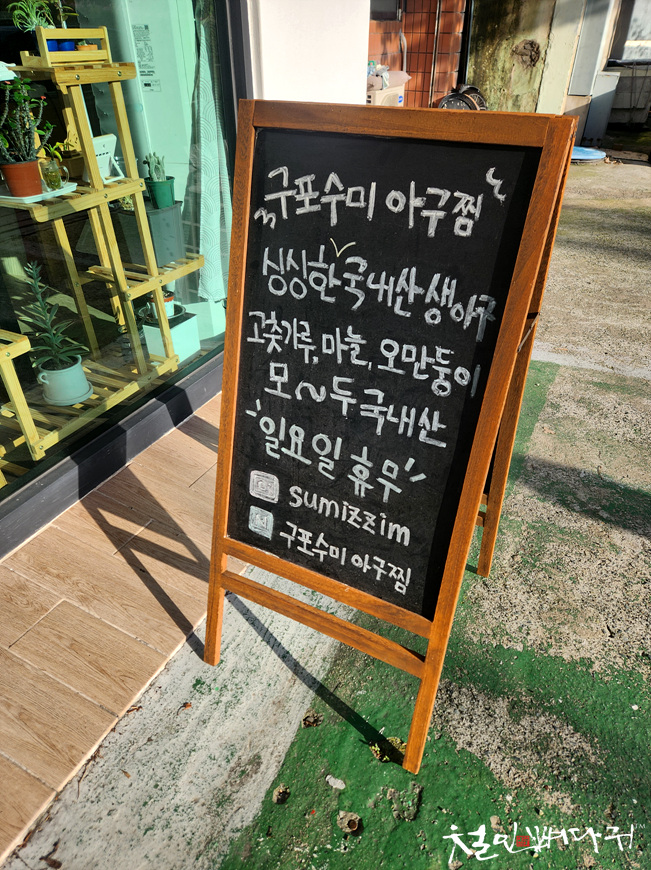 구포수미 아구찜
싱싱한 국내산 생아구
고춧가루, 마늘, 오만둥이
모~두 국내산
일요일 휴무
sumizzim
구포수미 아구찜